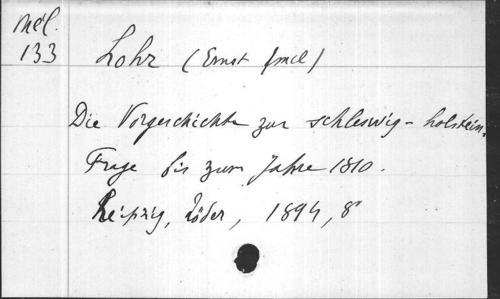 Mel. 133
Lohr (Ernst Emil)
Die Vorgeschichte zur schleswig-holstein.
Frage bis zum Jahre 1810.
Leipzig, Röder, 1894, 8°